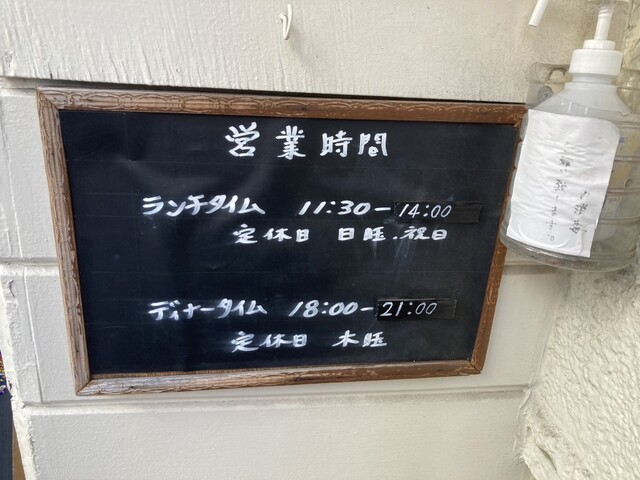 営業時間
ランチタイム 11:30－14:00
定休日 日曜、祝日
ディナータイム 18:00－21:00
定休日 木曜